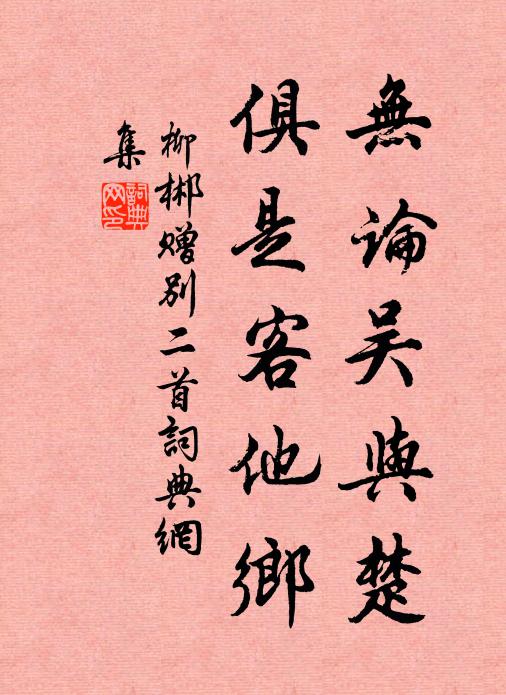 無論吳與楚
俱是客他鄉
柳郴贈別二首詞典網
集
詞典
网印